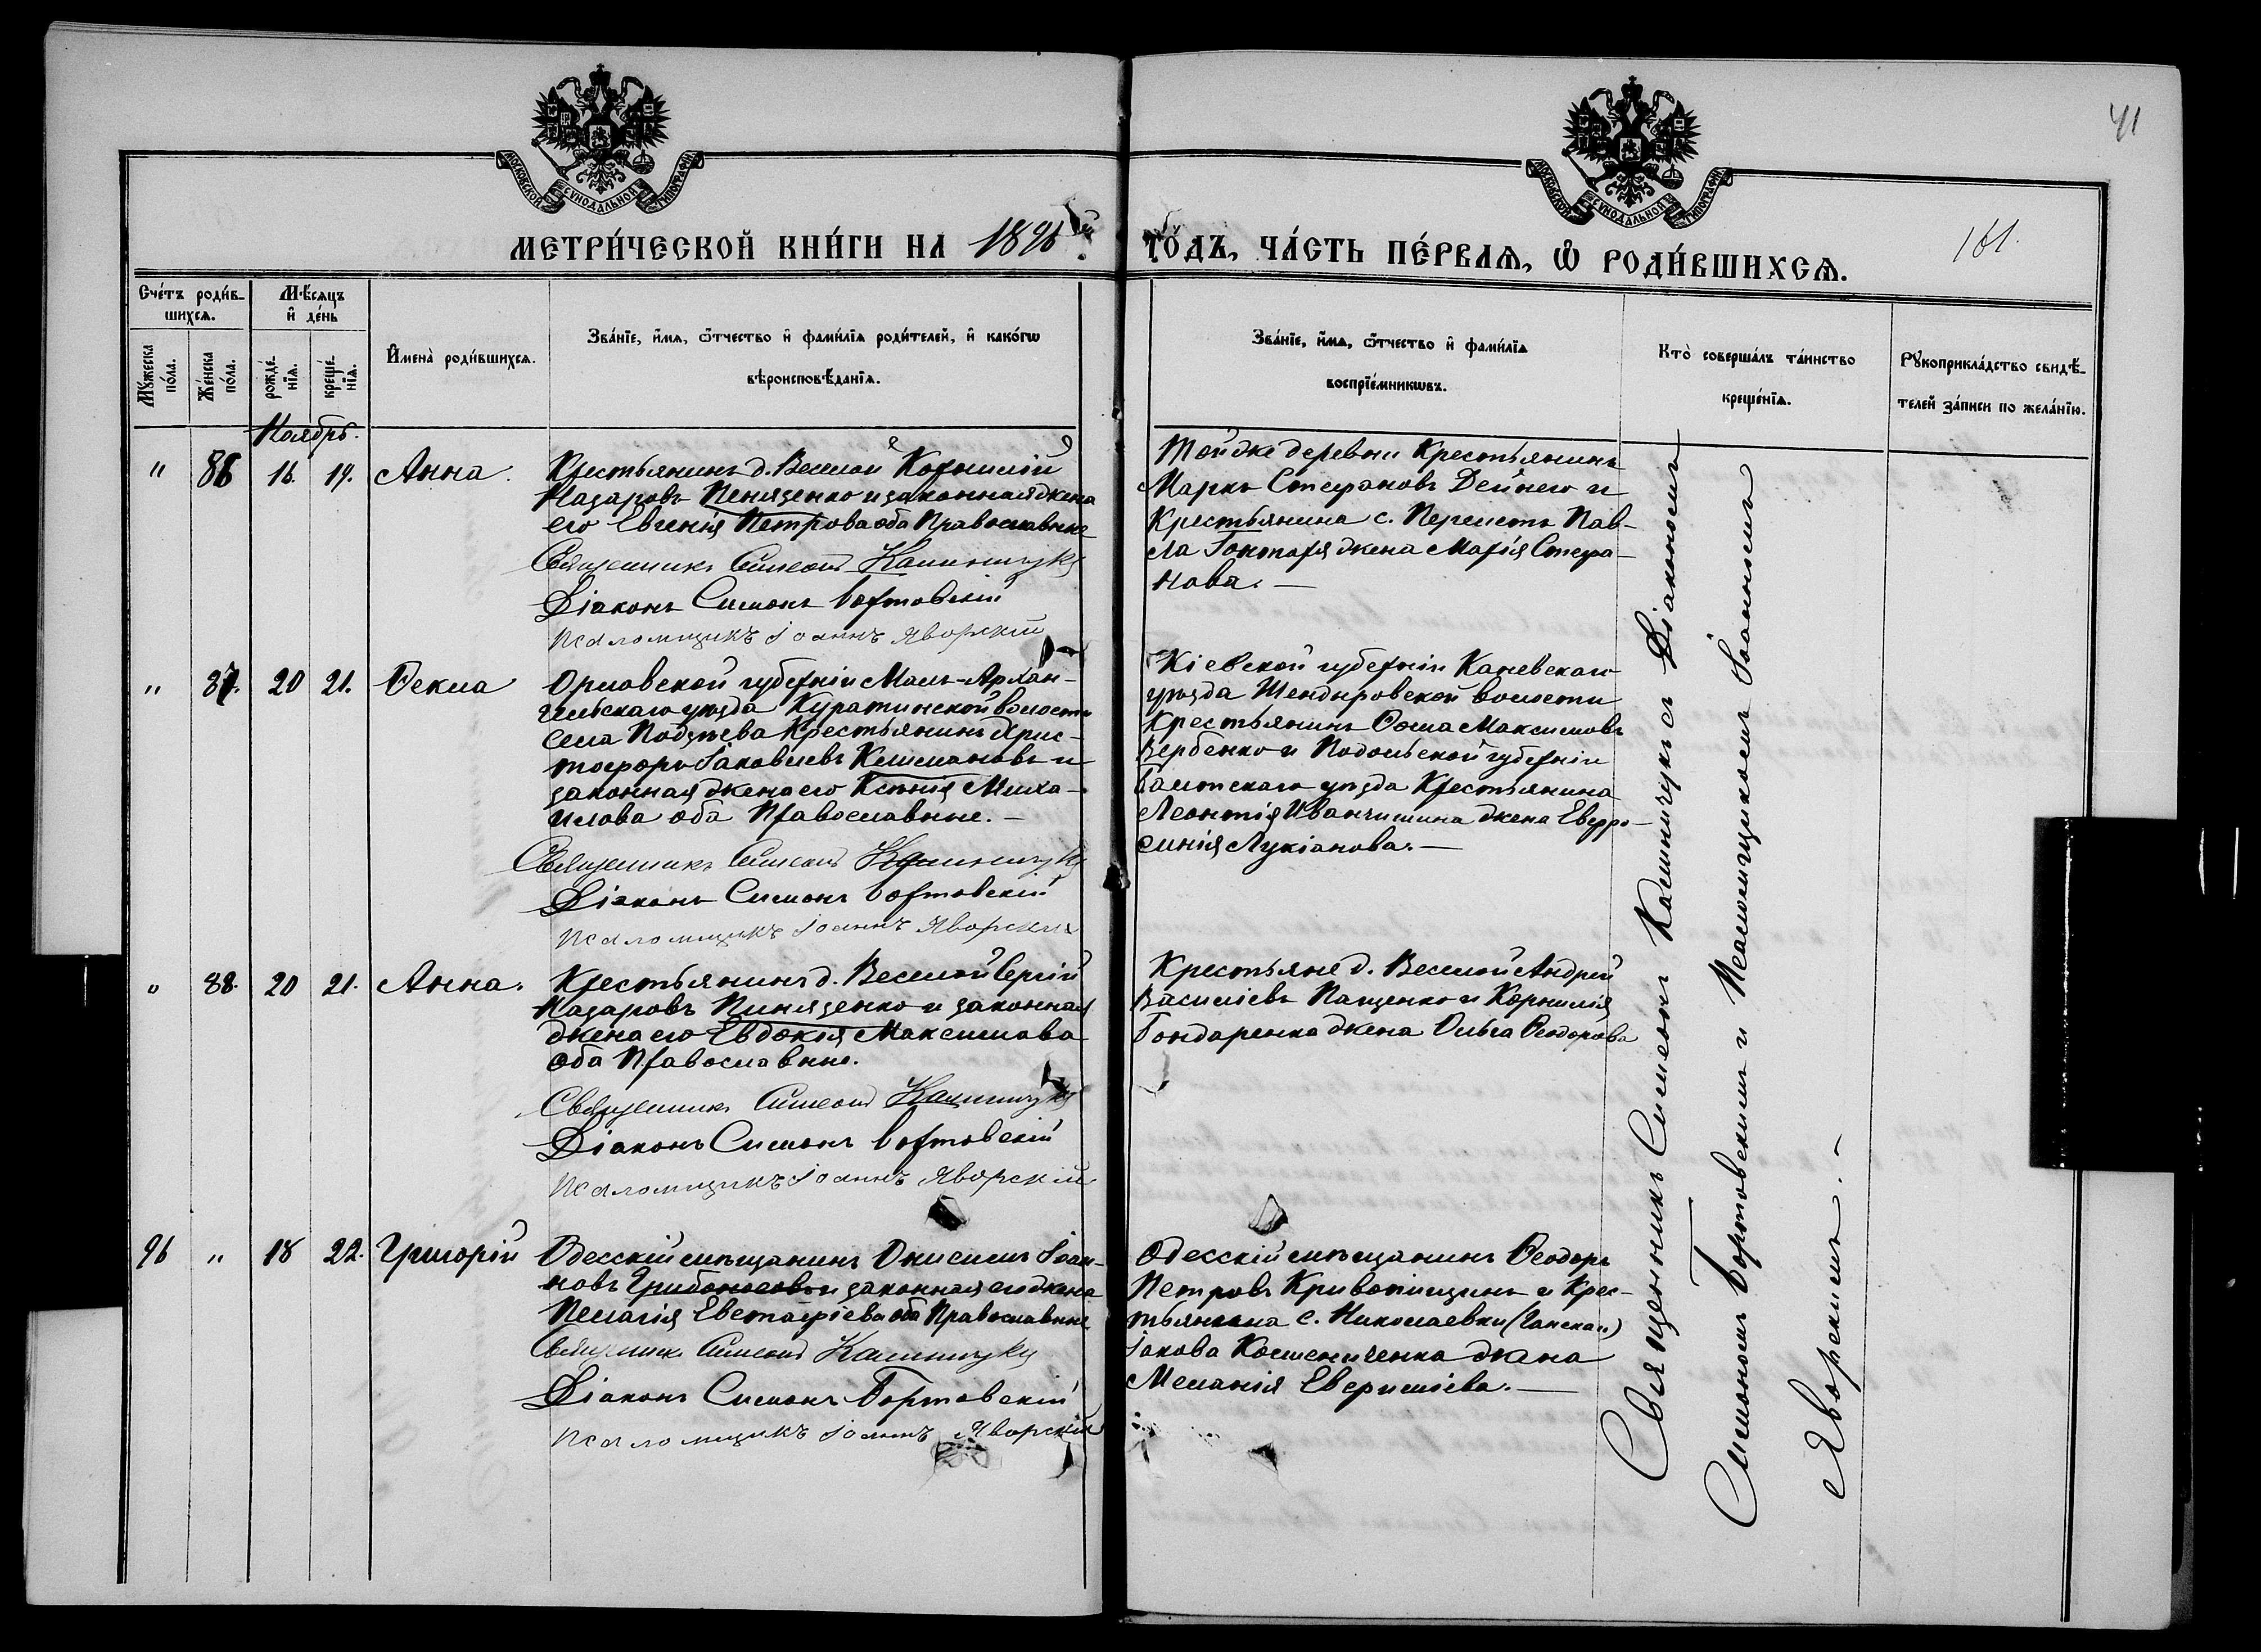 41
161.
МОСКОВСКОЙ СѴНОДАЛЬНОЙ ТИПОГРАФІИ
МОСКОВСКОЙ СѴНОДАЛЬНОЙ ТИПОГРАФІИ
МЕТРИ́ЧЕСКОЙ КНИ́ГИ НА 1896й
ГО́ДЪ, ЧА́СТЬ ПЕ́РВАЯ, Ѡ РОДИ́ВШИХСѦ.
Сче́тъ роди́в-
шихсѧ.
Мꙋ́жеска
по́ла.
Же́нска
по́ла.
Мѣ́сѧцъ
и҆ де́нь
рожде́-
нїѧ.
креще́-
нїѧ.
И҆мена̀ роди́вшихсѧ.
Зва́нїе, и҆́мѧ, ѻ҆́тчество и҆ фами́лїѧ роди́телей, и҆ како́гѡ
вѣроисповѣ́данїѧ.
Зва́нїе, и҆́мѧ, ѻ҆́тчество и҆ фами́лїѧ
воспрїе́мникѡвъ.
Кто̀ соверша́лъ та́инство
креще́нїѧ.
Рꙋкоприкла́дство свидѣ́-
телей за́писи по жела́нїю.
Ноябрь.
" 86 16. 19. Анна.
Крестьянинъ д. Веселой Корнилій
Назаровъ Пенязенко и законная жена
его Евгенія Петрова оба Православные
Священникъ Симеонъ Калиничукъ
Діаконъ Симонъ Бортовскій
Псаломщикъ Іоаннъ Яворскій
Той же деревни Крестьянинъ
Маркъ Стефановъ Дейнего и
Крестьянина с. Перелетъ Пав-
ла Гонтаря жена Марія Стефа-
нова.—
" 87. 20 21. Ѳекла
Орловской губерніи Мало-Архан-
гельскаго уѣзда Куратинской волости
села Подзѣева Крестьянинъ Хрис-
тофоръ Іаковлевъ Келемановъ и
законная жена его Ксенія Миха-
илова оба Православные.—
Священникъ Симеонъ Калиничукъ
Діаконъ Симонъ Бортовскій
Псаломщикъ Іоаннъ Яворскій
Кіевской губерніи Каневскаго
уѣзда Шендыровской волости
Крестьянинъ Ѳома Максимовъ
Вербенко и Подольской губерніи
Балтскаго уѣзда Крестьянина
Леонтія Иванчишина жена Евфро-
синія Лукіанова.—
" 88. 20 21. Анна.
Крестьянинъ д. Веселой Сергій
Назаровъ Пинязенко и законная
жена его Евдокія Максимова
оба Православные.
Священникъ Симеонъ Калиничукъ
Діаконъ Симонъ Бортовскій
Псаломщикъ Іоаннъ Яворскій
Крестьяне д. Веселой Андрей
Василіевъ Пащенко и Корнилія
Бондаренка жена Ольга Ѳеодорова
96 " 18 22. Григорій
Одесскій мѣщанинъ Онисимъ Іоан-
новъ Грибоносовъ и законная его жена
Пелагія Евстафіева оба Православные
Священникъ Симеонъ Калиничукъ
Діаконъ Симонъ Бортовскій
Псаломщикъ Іоаннъ Яворскій
Одесскій мѣщанинъ Ѳеодоръ
Петровъ Кривопишинъ и Крес-
тьянина с. Николаевки (Ганской)
Іакова Колесниченка жена
Меланія Евфиміева.—
Священникъ Симеонъ Калиничукъ съ Діакономъ
Симономъ Бортовскимъ и Псаломщикомъ Іоанномъ
Яворскимъ.—